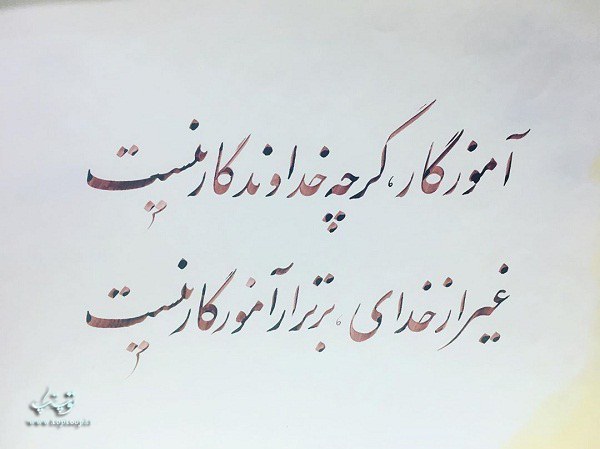 آموزگار، گرچه خداوندگار نیست
غیر از خدای، برتر از آموزگار نیست